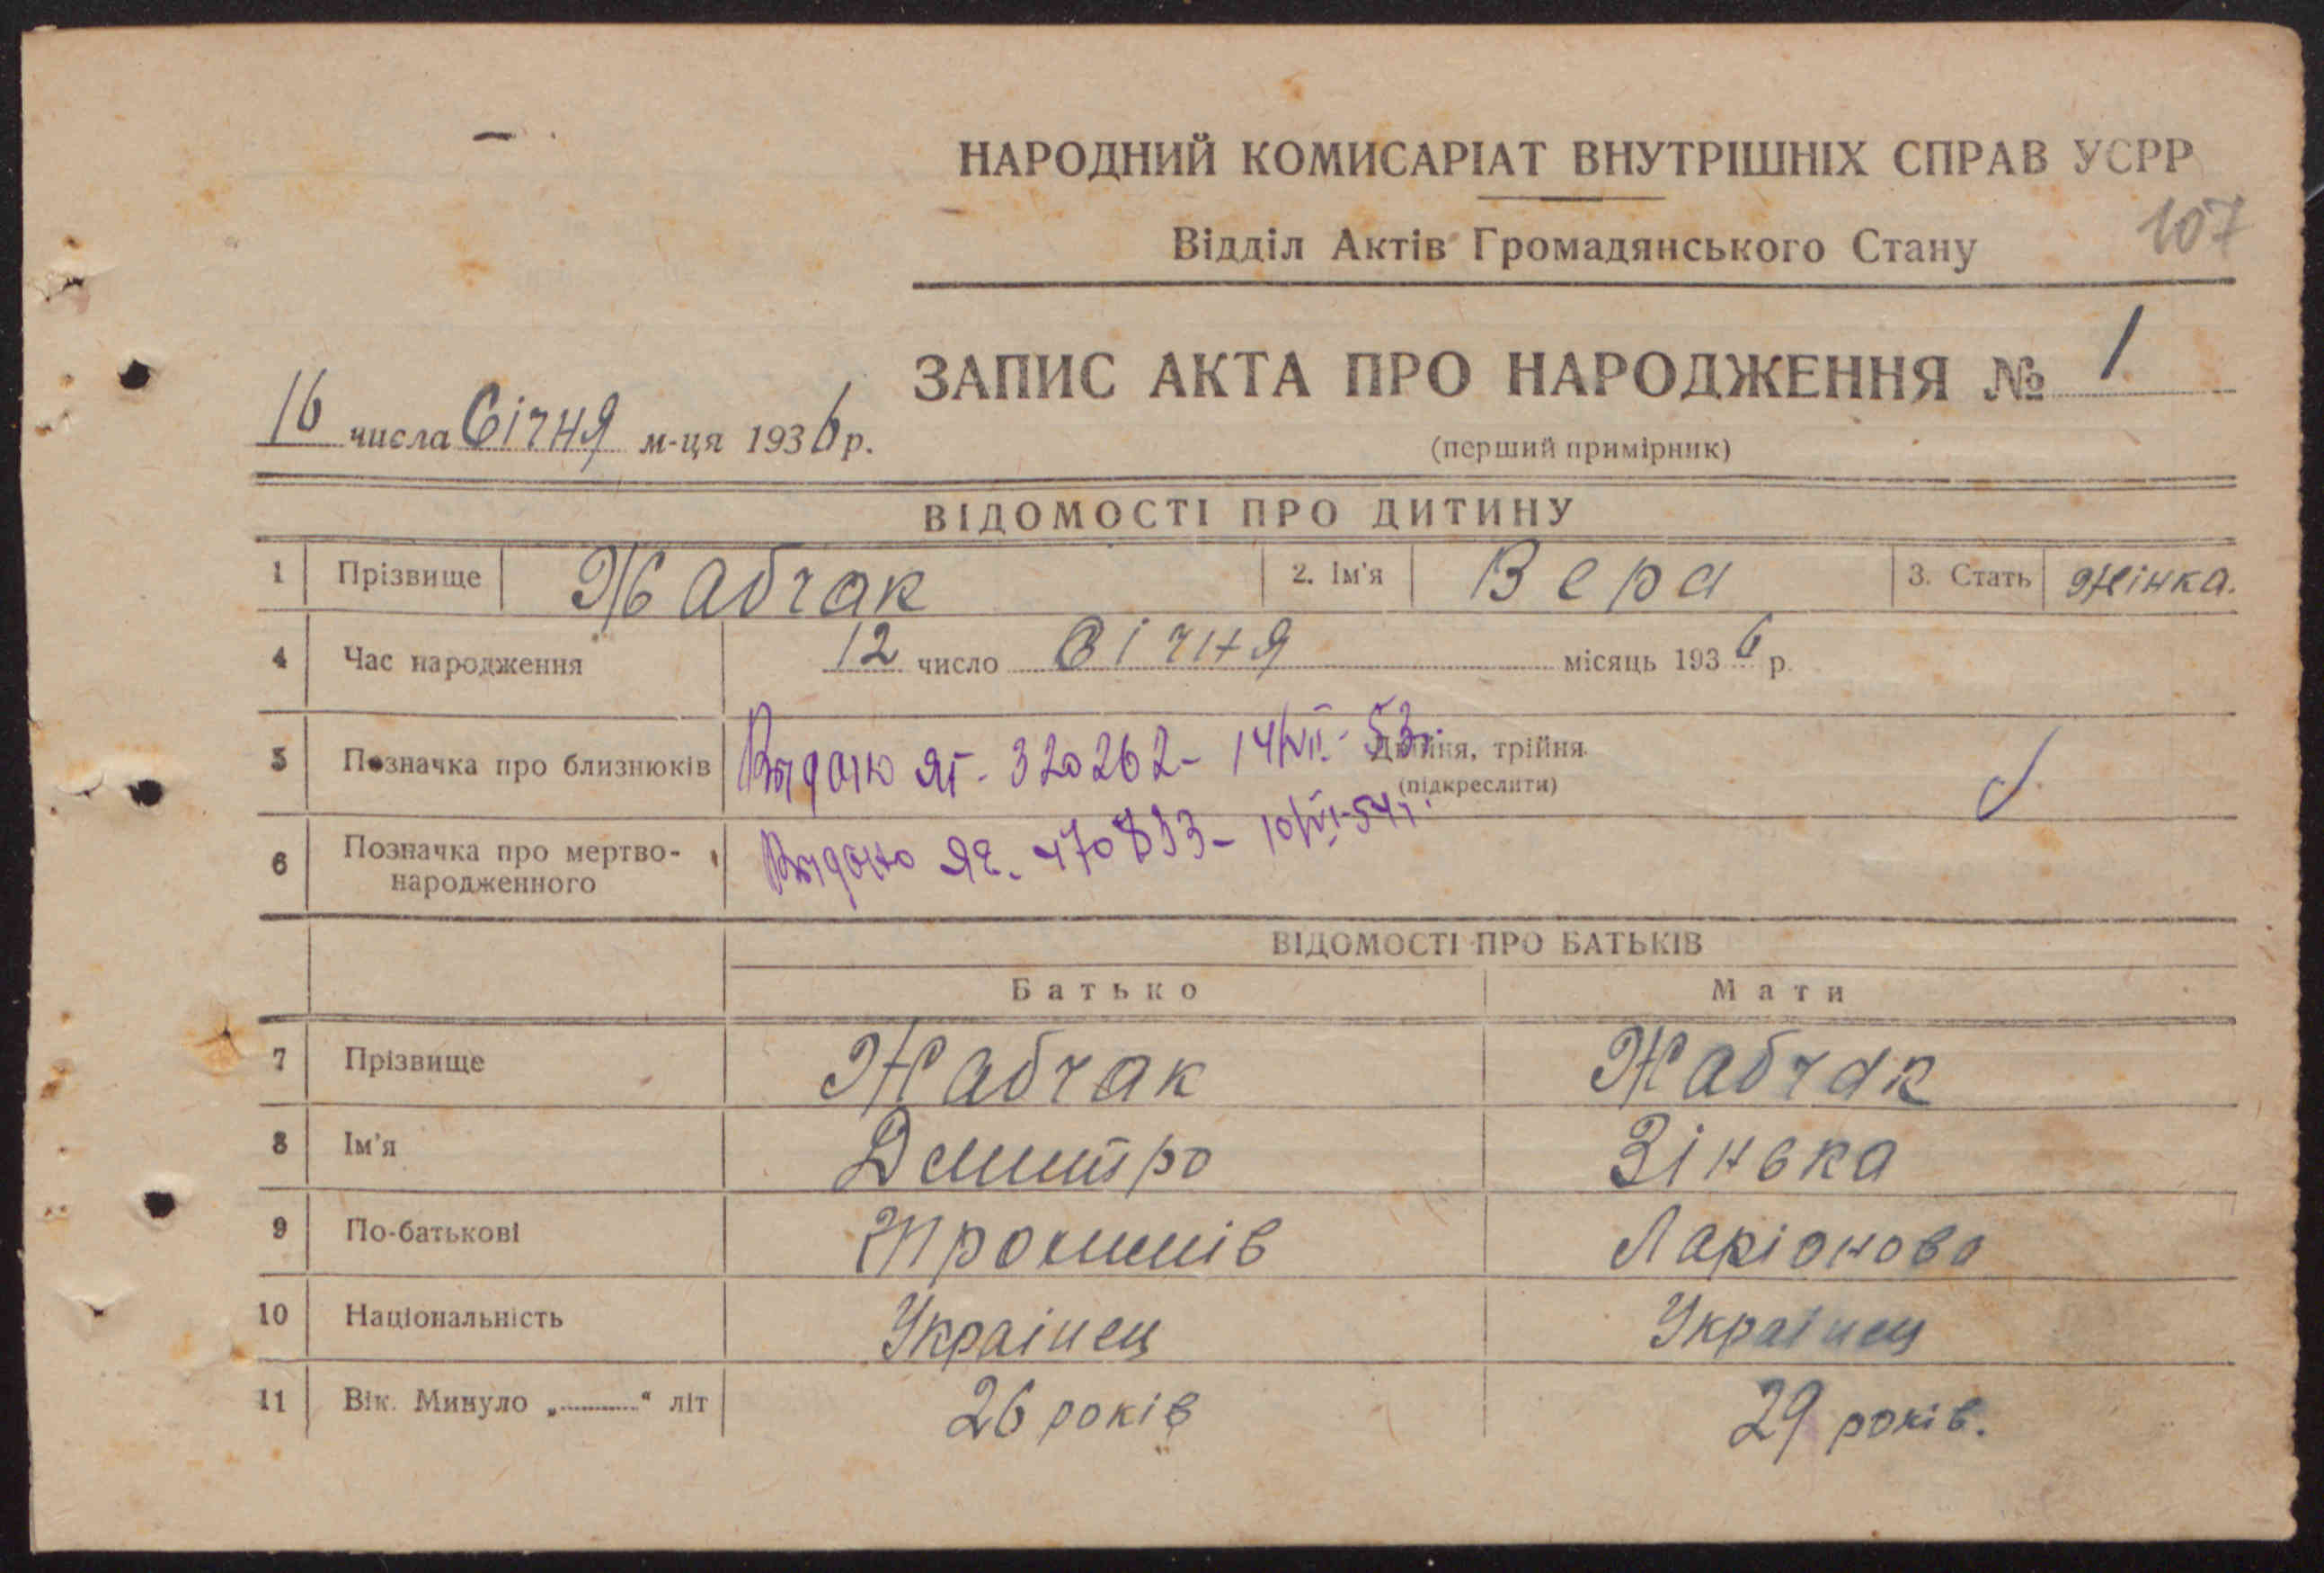 НАРОДНИЙ КОМИСАРІАТ ВНУТРІШНІХ СПРАВ УСРР
107
Відділ Актів Громадянського Стану
ЗАПИС АКТА ПРО НАРОДЖЕННЯ № 1
16 числа Січня м-ця 1936 р.
(перший примірник)
ВІДОМОСТІ ПРО ДИТИНУ
1 Прізвище Жабчак 2. Ім'я Вера 3. Стать жінка.
4 Час народження 12 число Січня місяць 1936 р.
5 Позначка про близнюків Двійня, трійня
(підкреслити)
Видано ЯГ- 320262- 14/VII- 53г.
6 Позначка про мертво-
народженного
10/VI-54г.
ВІДОМОСТІ ПРО БАТЬКІВ
Батько Мати
7 Прізвище Жабчак Жабчак
8 Ім'я Дмитро Зінька
9 По-батькові Ларіонова
10 Національність Українец Українец
11 Вік. Минуло „ “ літ 26 років 29 років.